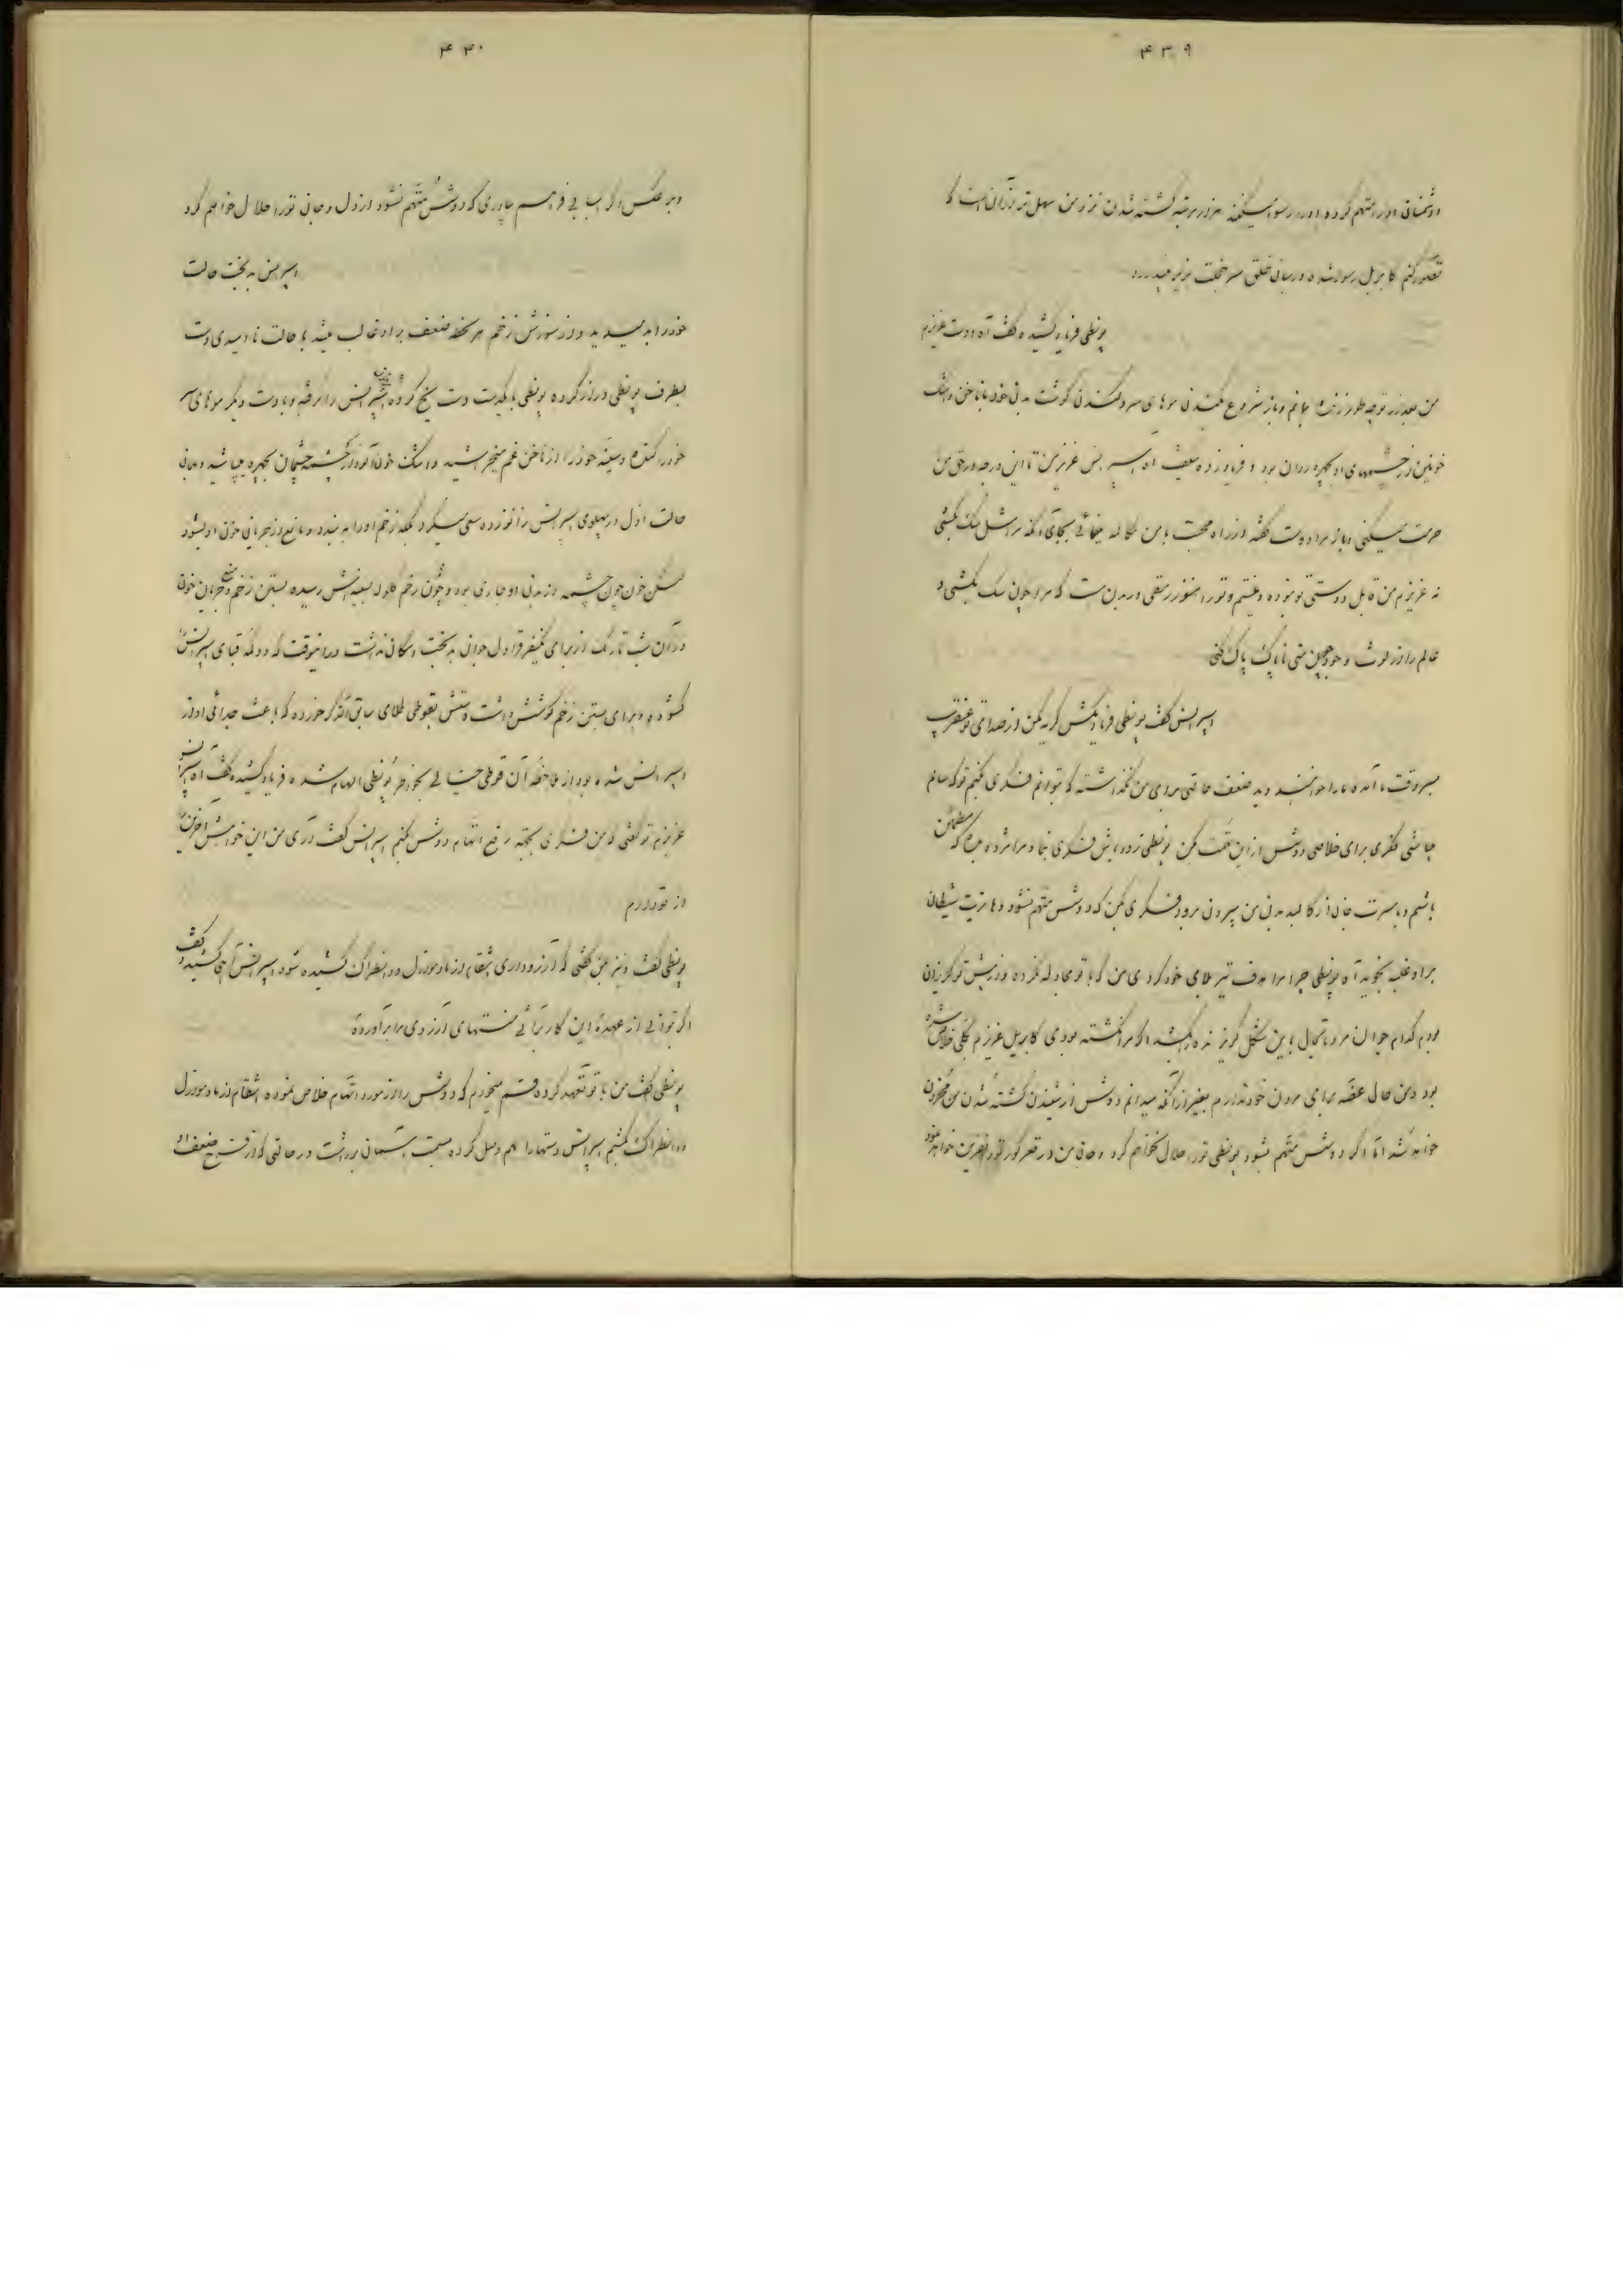 ۴۳۹
دشمنان او را متهم کرده او را رسوا میکنند هزار مرتبه کشته شدن نزد من سهل‌تر از آن است که
تصور کنم کابریل رسوا شده در میان خلق سر خجلت بزیر میندازد
پونطی فریاد کشیده گفت آه دوست عزیزم
من بعد از تو چه طور زنده بمانم و باز شروع بکندن موهای سر و کندن گوشت بدن خود با ناخن و اشک
خونین از چشمهای او بچهره روان بود و فریاد زده میگفت آه اسپرانس عزیز من تا این درجه در حق من
حرمت میکنی و باز مرا دوست گفته از راه محبت با من مکالمه مینمائی بجای آنکه مرا مثل سگ بکشی
نه عزیزم من قابل دوستی تو نبوده و نیستم و تو را هنوز رمقی در بدن هست که مرا چون سگ بکشی و
عالم را از لوث وجود چون منی ناپاک پاک کنی
اسپرانس گفت پونطی فریاد مکش گریه مکن از صدای تو عنقریب
بسر وقت ما آمده ما را خواهند دید ضعف حالتی برای من نگذاشته که بتوانم فکری کنم تو که سالم
میباشی فکری برای خلاصی دوش از این تهمت بکن پونطی زود باش فکری بنما و مرا مژده بده که مطمئن
باشم و با مسرت جان از کالبد بدن من بیرون برود فکری بکن که دوش متهم نشود و مارتیت شیطان
بر او غلبه نجوید آه پونطی چرا مرا هدف تیر بلای خود کردی من که با تو مجادله نکرده و از پیش تو گریزان
بودم کدام جوان مرد تا بحال باین شکل گریزنده را بکشد اگر مرا نکشته بودی کابریل عزیزم بکلی خلاص شده
بود و من حال غصه برای مردن خود ندارم بغیر از آنکه میدانم دوش از شنیدن کشته شدن من محزون
خواهد شد اما اگر دوش متهم بشود پونطی تو را حلال نخواهم کرد و جان من در قعر گور تو را نفرین خواهد نمود
۴۴۰
و بر عکس اگر اسبابی فراهم بیاوری که دوش متهم نشود از دل و جان تو را حلال خواهم کرد
اسپرانس بدبخت حالت
خود را بد میدید و از سوزش زخم هر لحظه ضعف بر او غالب میشد با حالت ناامیدی دست
بطرف پونطی دراز کرده پونطی با یکدست دست یخ کرده اسپرانس را گرفته و با دست دیگر موهای سر
خود را کنده و سینه خود را از ناخن غم میخراشید و اشک خون‌آلود از چشمه چشمان بچهره میپاشید و بهمان
حالت اول در پهلوی اسپرانس زانو زده سعی میکرد بلکه زخم او را ببندد و مانع از جریان خون او بشود
لیکن خون چون چشمه از بدن او جاری بود و چون زخم گلوله بسینه‌اش رسیده بستن زخم و منع جریان خون
در آن شب تاریک از برای یکنفر قراول جوان بدبخت امکان نداشت در اینوقت که دو تکمه قبای اسپرانس را
گشوده و برای بستن زخم کوشش داشت دستش بقوطی طلای سابق الذکر خورده که باعث جدائی او از
اسپرانس شده بود از ملاحظه آن قوطی خیالی بخاطر پونطی الهام شده فریاد کشیده گفت آه اسپرانس
عزیزم تو گفتی که من فکری بجهة رفع اتهام دوش بکنم اسپرانس گفت آری من این خواهش آخرین را
از تو دارم
پونطی گفت و نیز بمن گفتی که آرزو داری انتقام از مادموازل دانطراک کشیده شود اسپرانس آهی کشید و گفت
اگر توانی از عهده این کار برآئی منتهای آرزوی مرا برآورده
پونطی گفت من با تو تعهد کرده قسم میخورم که دوش را از مورد اتهام خلاص نموده انتقام از مادموازل
دانطراک بکشم اسپرانس دستها را بهم وصل کرده بسمت آسمان برداشت در حالتی که از فرط ضعف او